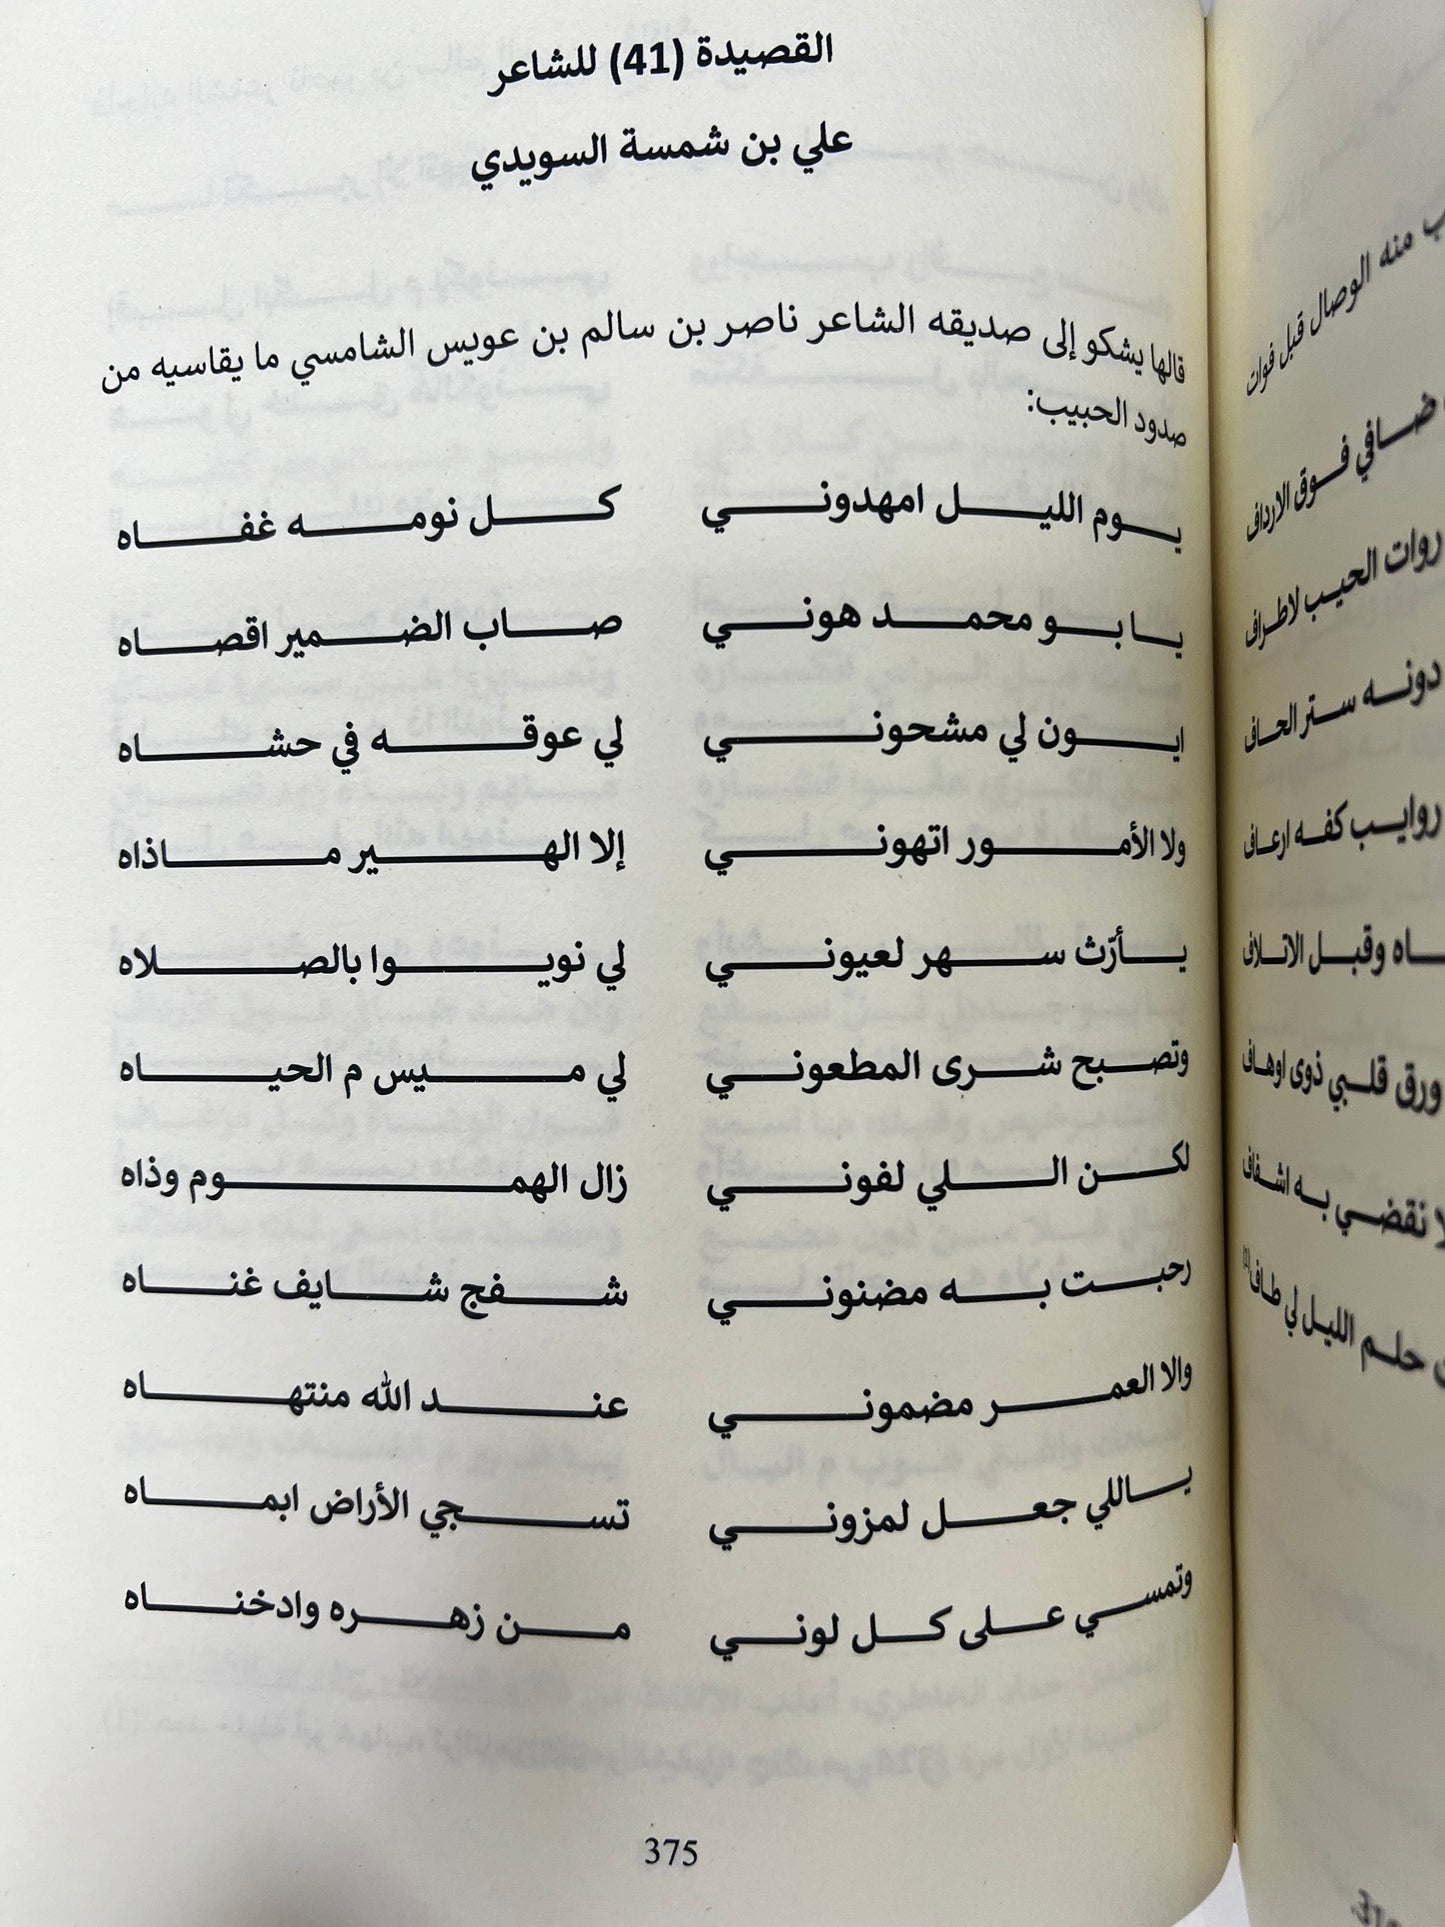 القصيدة (41) للشاعر
علي بن شمسة السويدي
قالها يشكو إلى صديقه الشاعر ناصر بن سالم بن عويس الشامسي ما يقاسيه من
صدود الحبيب:
يوم الليل امهدوني كل نومه غفاه
يا بو محمد هوني صاب الضمير اقصاه
ايون لي مشحوني لي عوقه في حشاه
ولا الأمور اتهوني إلا الهير ماذاه
يأرّث سهر لعيوني لي نويوا بالصلاه
وتصبح شرى المطعوني لي ميس م الحياه
لكن اللي لفوني زال الهموم وذاه
رحبت به مضنوني شفج شايف غناه
والا العمر مضموني عند الله منتهاه
ياللي جعل لمزوني تسجي الأراض ابماه
وتمسي على كل لوني من زهره وادخناه
375
ب منه الوصال قبل فوات
ضافي فوق الارداف
روات الحيب لاطراف
دونه ستر الحاف
روايب كفه ارعاف
اه وقبل الاتلاف
ورق قلبي ذوى اوهاف
لا نقضي به اشفاف
حلم الليل لي طاف